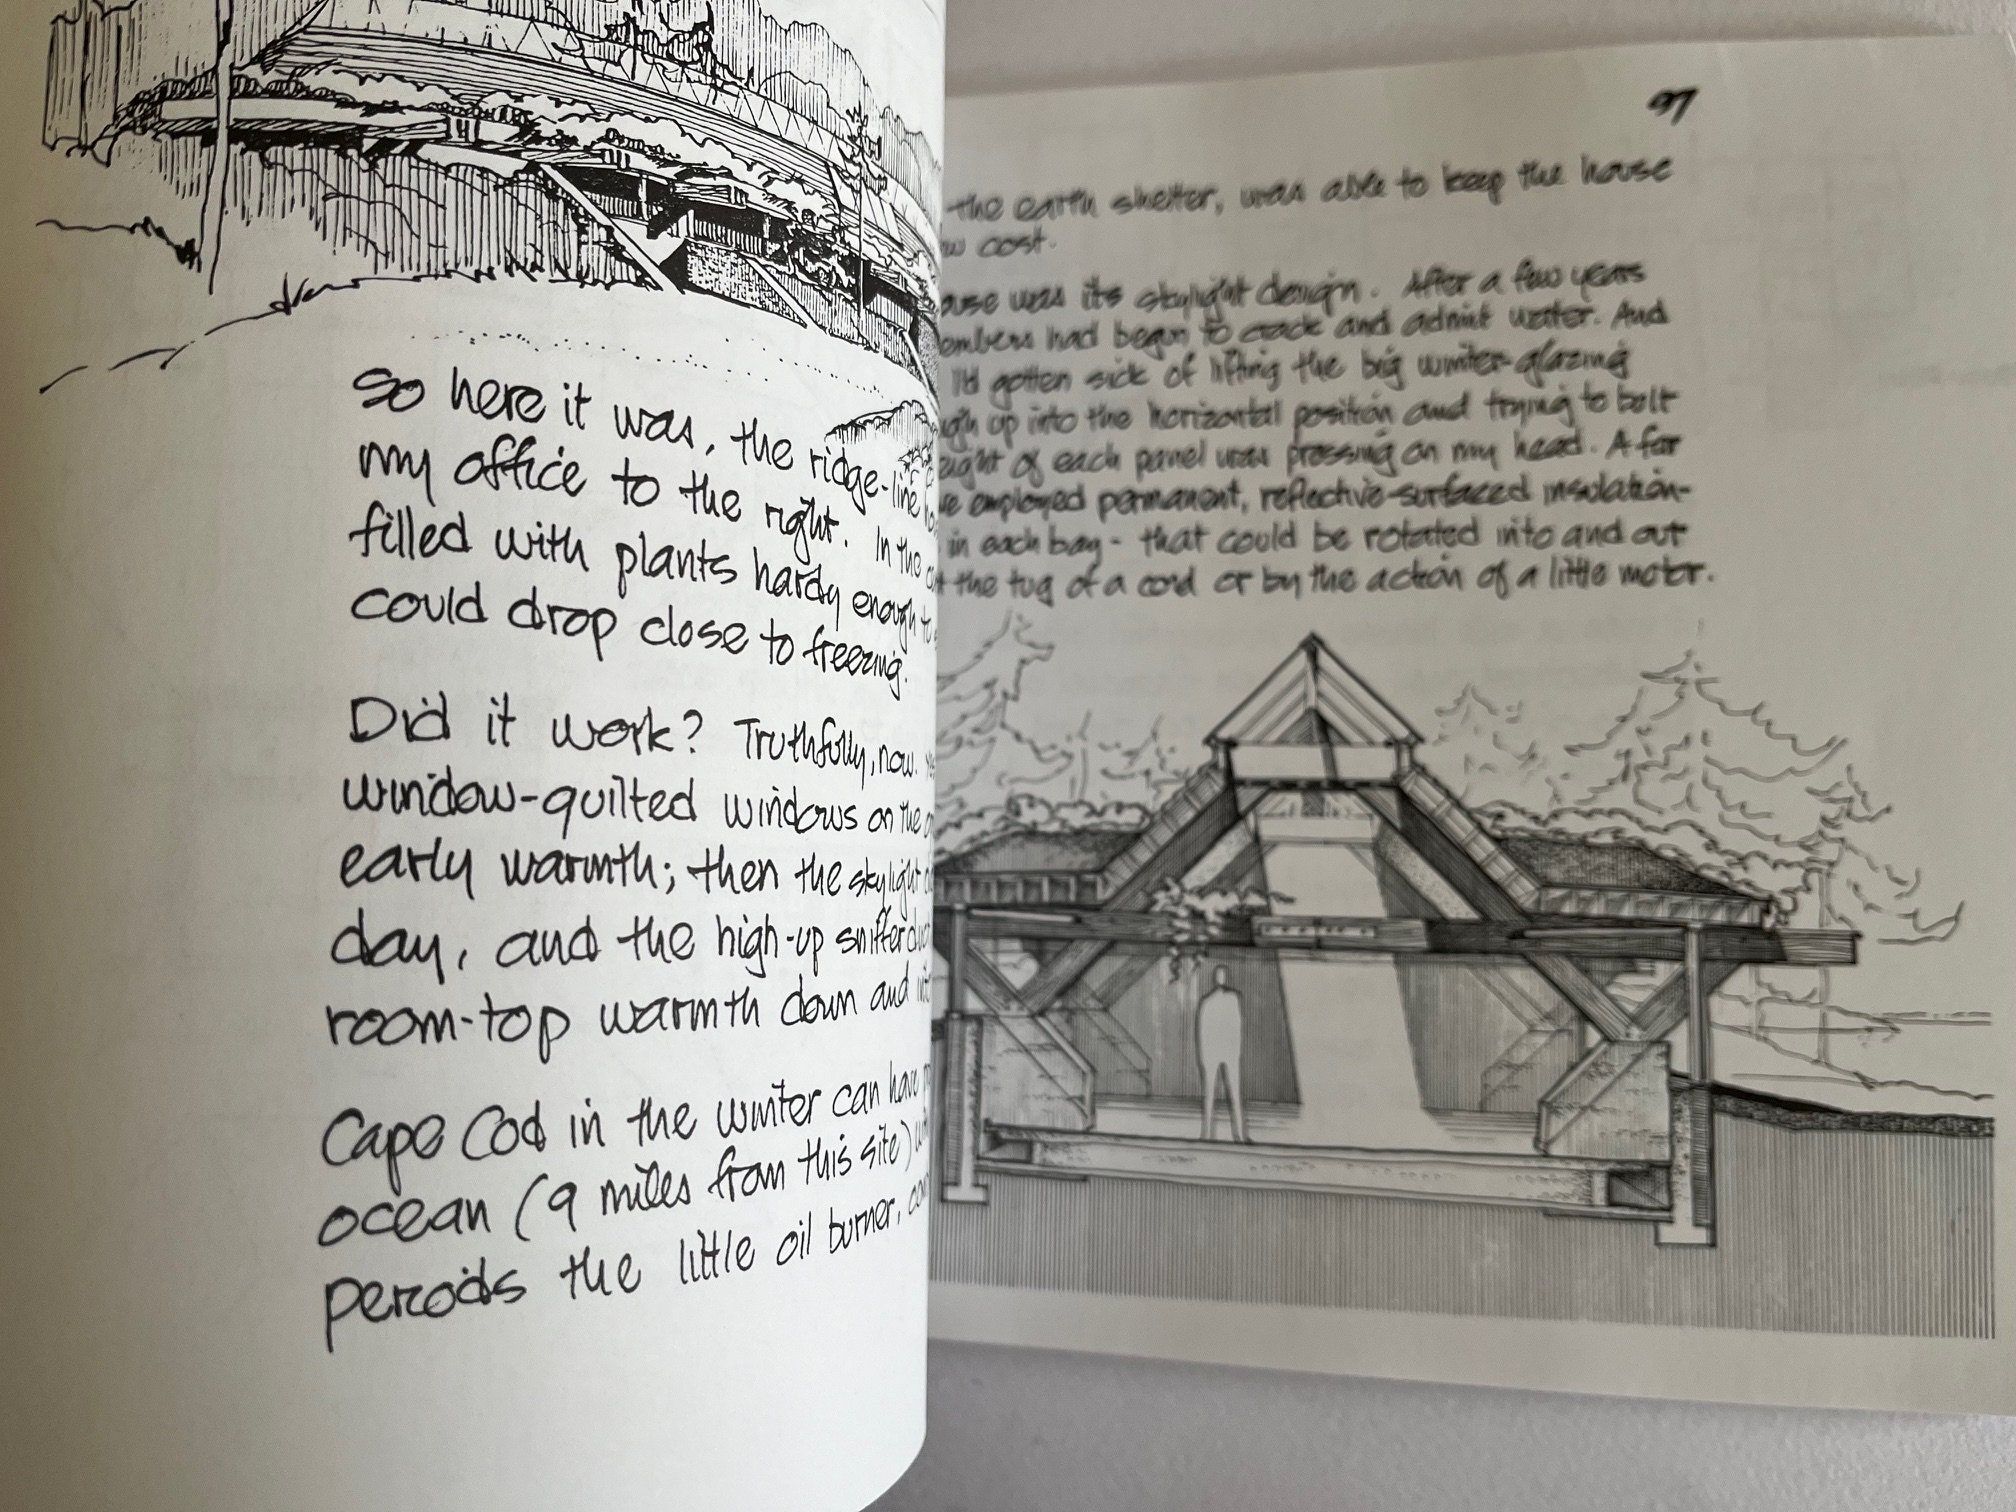 So here it was, the ridge-line
my office to the right. In the
filled with plants hardy enough to
could drop close to freezing.
Did it work? Truthfully, now.
window-quilted windows on the
early warmth; then the skylight
day, and the high-up sniffer duct
room-top warmth down and
Cape Cod in the winter can have
ocean (9 miles from this site)
periods the little oil burner,
97
the earth shelter, was able to keep the house
cost.
was its skylight design. After a few years
had begun to crack and admit water. And
I'd gotten sick of lifting the big winter-glazing
up into the horizontal position and trying to bolt
of each panel was pressing on my head. A far
employed permanent, reflective-surfaced insulation-
in each bay - that could be rotated into and out
the tug of a cord or by the action of a little motor.